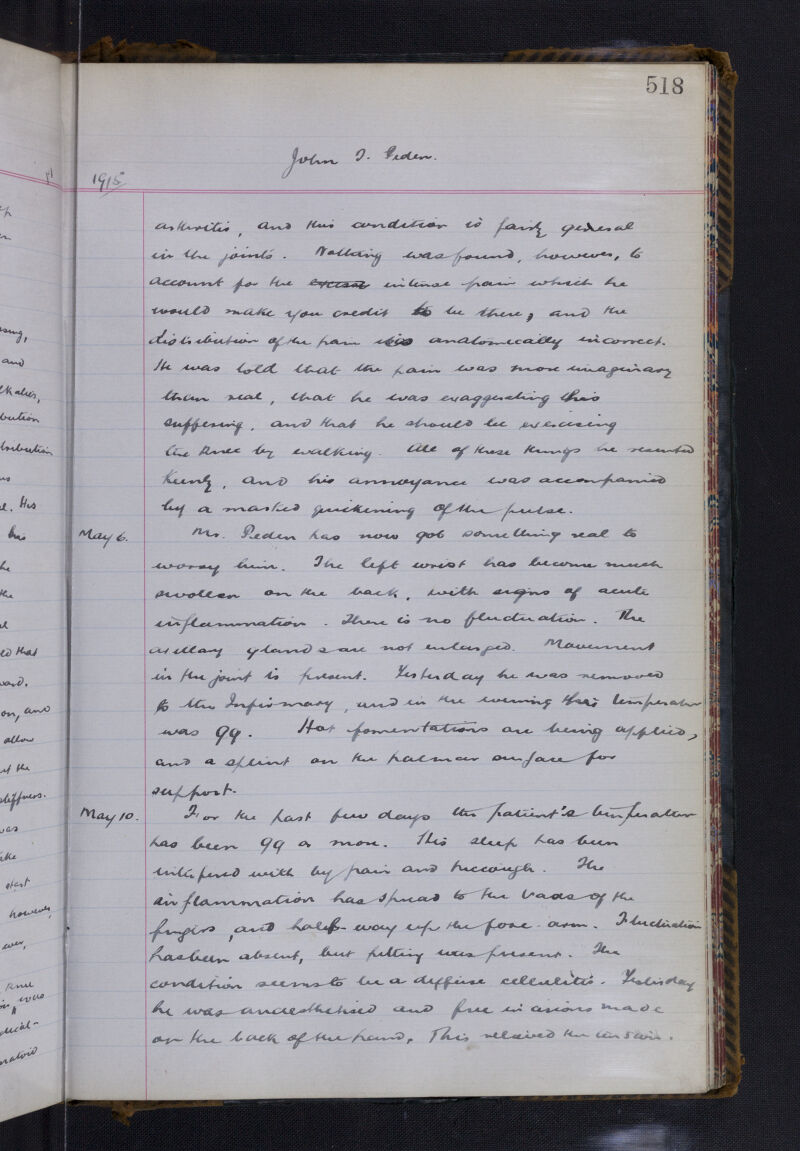 518
John T. Peden.
1915
arthritis, and this condition is fairly general
in the joints. Nothing was found, however, to
account for the intense pain which he
would make you credit to be there, and the
distribution of the pain was anatomically incorrect.
He was told that the pain was more imaginary
than real, that he was exaggerating his
suffering, and that he should be exercising
the knee by walking. All of these things he resented
keenly, and his annoyance was accompanied
by a marked quickening of the pulse.
May 6. Mr. Peden has now got something real to
worry him. The left wrist has become much
swollen on the back, with signs of acute
inflammation. There is no fluctuation. The
axillary glands are not enlarged. Movement
in the joint is present. Yesterday he was removed
to the Infirmary, and in the evening his temperature
was 99. Hot fomentations are being applied,
and a splint on the palmar surface for
support.
May 10. For the past few days the patient's temperature
has been 99 or more. His sleep has been
interfered with by pain and hiccough. The
inflammation has spread to the backs of the
fingers, and half-way up the fore-arm. Fluctuation
has been absent, but pitting was present. The
condition seems to be a diffuse cellulitis. Yesterday
he was anaesthetised and free incisions made
on the back of the hand. This relieved the tension.